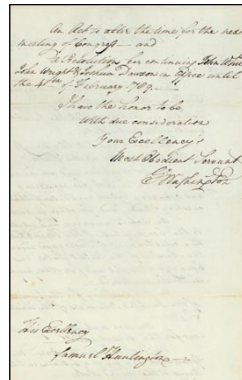 An Act to alter the time for the next
meeting of Congress — and
A Resolution for continuing John White
John Wright & Joshua Dawson in Office until
the 4th of February 1789. —
I have the honor to be
With due consideration
Your Excellency's
Most Obedient Servant
G Washington
His Excellency
Samuel Huntington